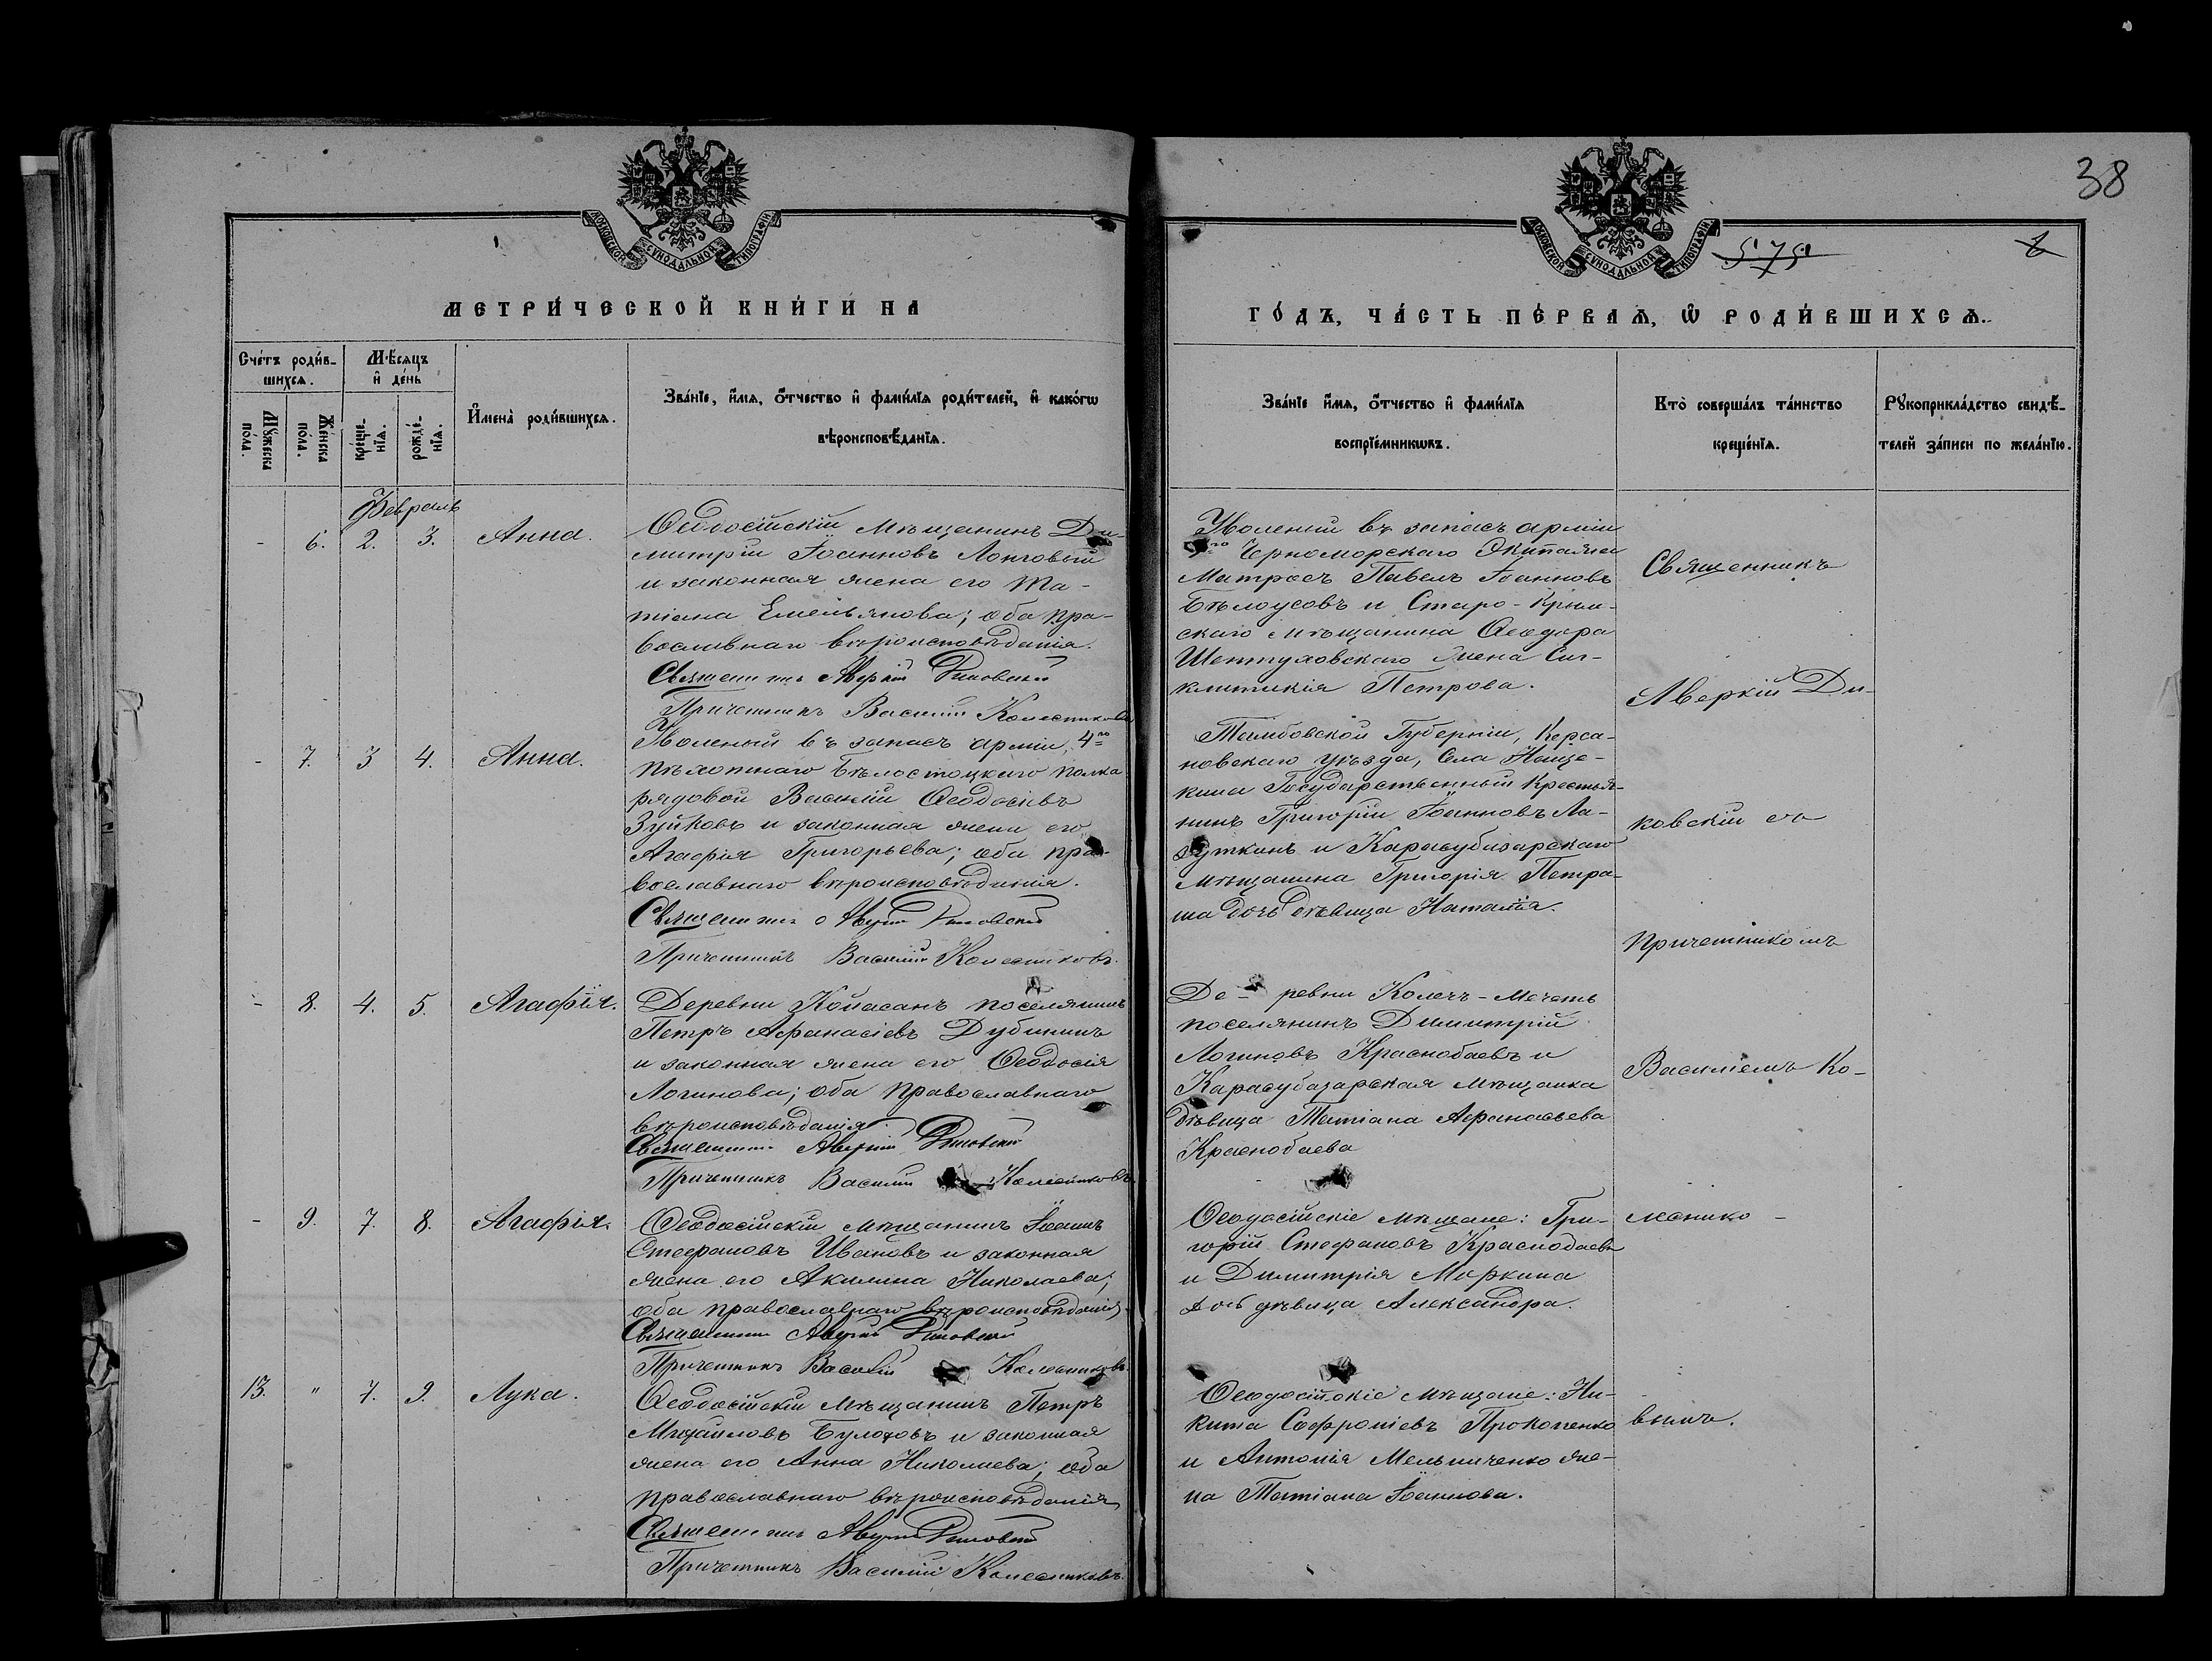 38
МОСКОВСКОЙ СУНОДАЛЬНОЙ ТИПОГРАФІИ
МОСКОВСКОЙ СУНОДАЛЬНОЙ ТИПОГРАФІИ
575
МЕТРИ́ЧЕСКОЙ КНИ́ГИ НА
ГО́ДЪ, ЧА́СТЬ ПЕ́РВАѦ, Ѡ҆ РОДИ́ВШИХСѦ.
Сче́тъ роди́в-
шихсѧ.
Мѣ́сѧцъ
и҆ де́нь
Мꙋ́жеска
по́ла.
Же́нска
по́ла.
креще́-
нїѧ.
рожде́-
нїѧ.
И҆мена̀ роди́вшихсѧ.
Зва́нїе, и҆́мѧ, ѻ҆́тчество и҆ фами́лїѧ роди́телей, и҆ како́гѡ
вѣроисповѣ́данїѧ.
Зва́нїе и҆́мѧ, ѻ҆́тчество и҆ фами́лїѧ
воспрїе́мникѡвъ.
Кто̀ соверша́лъ та́инство
креще́нїѧ.
Рꙋкоприкла́дство свидѣ́-
телей за́писи по жела́нїю.
Февраль
- 6. 2. 3. Анна.
Ѳеодосійскій мѣщанинъ Ди-
митрій Іоанновъ Лонговой
и законная жена его Та-
тіана Емельянова; оба пра-
вославнаго вѣроисповѣданія.
Священникъ Аверкій Диковскій
Причетникъ Василій Колесниковъ
Уволеный въ запасъ арміи
Черноморскаго Экипажа
Матросъ Павелъ Іоанновъ
Бѣлоусовъ и Старо-Крым-
скаго мѣщанина Ѳеодора
Шептуховскаго жена Син-
клитикія Петрова.
- 7. 3 4. Анна.
Уволеный въ запасъ арміи, 4го
пѣхотнаго Бѣлостоцкаго полка
рядовой Василій Ѳеодосіевъ
Зуйковъ и законная жена его
Агафія Григорьева; оба пра-
вославнаго вѣроисповѣданія.
Священникъ Аверкій Диковскій
Причетникъ Василій Колесниковъ.
Тамбовской Губерніи, Керса-
новскаго уѣзда, Села Наще-
кина Государственный крестья-
нинъ Григорій Іоанновъ Ла-
зуткинъ и Карасубазарскаго
мѣщанина Григорія Петра-
ша дочь дѣвица Наталія.
- 8. 4. 5. Агафія.
Деревни Койасанъ поселянинъ
Петръ Аѳанасіевъ Дубининъ
и законная жена его Ѳеодосія
Логинова; оба православнаго
вѣроисповѣданія.
Священникъ Аверкій Диковскій
Причетникъ Василій Колесниковъ
Де- ревни Колечь-Мечеть
поселянинъ Димитрій
Логиновъ Краснобаевъ и
Карасубазарская мѣщанка
дѣвица Татіана Аѳанасьева
Краснобаева
- 9. 7. 8. Агафія.
Ѳеодосійскій мѣщанинъ Іоаннъ
Стефановъ Ивановъ и законная
жена его Акилина Николаева;
оба православнаго вѣроисповѣданія.
Священникъ Аверкій Диковскій
Причетникъ Василій Колесниковъ.
Ѳеодосійскіе мѣщане: Гри-
горій Стефановъ Краснобаевъ
и Димитрія Моркина
дочь дѣвица Александра.
13. " 7. 9. Лука.
Ѳеодосійскій мѣщанинъ Петръ
Михаиловъ Булаховъ и законная
жена его Анна Николаева; оба
православнаго вѣроисповѣданія
Священникъ Аверкій Диковскій
Причетникъ Василій Колесниковъ.
Ѳеодосійскіе мѣщане: Ни-
кита Софроніевъ Прокопенко
и Антонія Мельниченко же-
на Татіана Іоаннова.
Священникъ
Аверкій Ди-
ковскій съ
причетникомъ
Василіемъ Ко-
леснико-
вымъ.